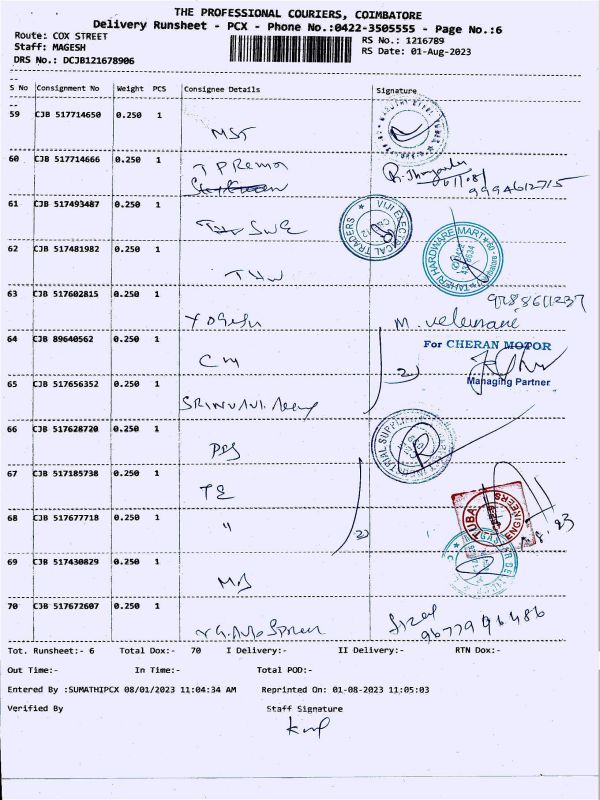 THE PROFESSIONAL COURIERS, COIMBATORE
Delivery Runsheet - PCX - Phone No.:0422-3505555 - Page No.:6
Route: COX STREET RS No.: 1216789
Staff: MAGESH RS Date: 01-Aug-2023
DRS No.: DCJB121678906
S No Consignment No Weight PCS Consignee Details Signature
59 CJB 517714650 0.250 1
MST
60 CJB 517714666 0.250 1
T P Remon
9994612715
61 CJB 517493487 0.250 1
VIJI ELECTRICAL TRADERS
62 CJB 517481982 0.250 1
TAHERI HARDWARE MART
63 CJB 517602815 0.250 1
Yogesh M. velumani
64 CJB 89640562 0.250 1
For CHERAN MOTOR
CM
Managing Partner
65 CJB 517656352 0.250 1
66 CJB 517628720 0.250 1
67 CJB 517185738 0.250 1
TE
TUBA ENGINEERS
68 CJB 517677718 0.250 1
"
69 CJB 517430829 0.250 1
70 CJB 517672607 0.250 1
Tot. Runsheet:- 6 Total Dox:- 70 I Delivery:- II Delivery:- RTN Dox:-
Out Time:- In Time:- Total POD:-
Entered By :SUMATHIPCX 08/01/2023 11:04:34 AM Reprinted On: 01-08-2023 11:05:03
Verified By Staff Signature